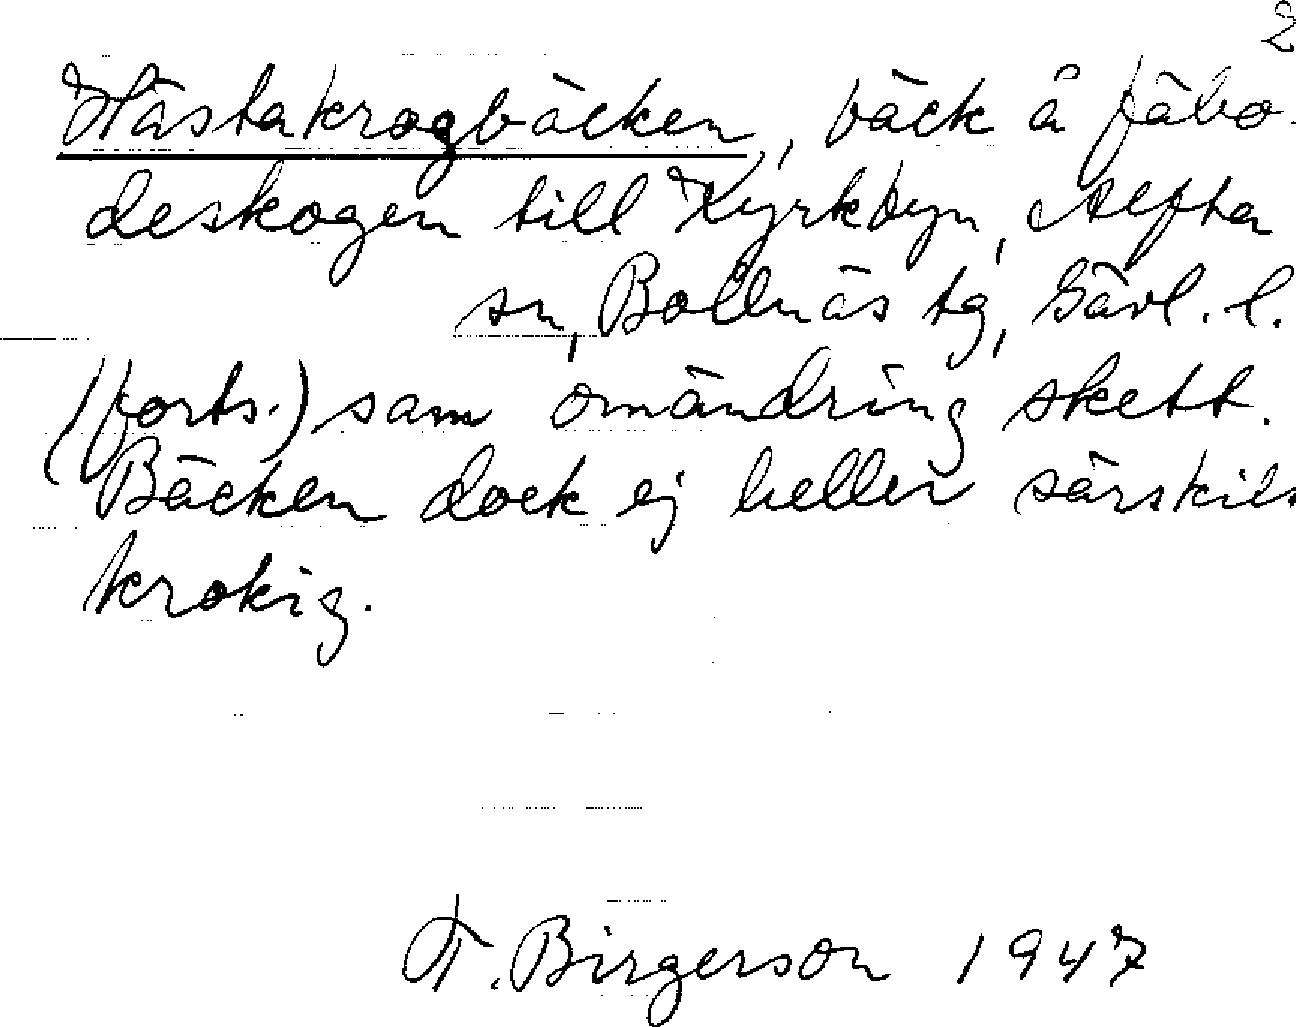 2
Hästakrogbäcken, bäck å fäbo-
deskogen till Kyrkbyn, Alfta
sn, Bollnäs tg, Gävl. l.
(forts.) sam omändring skett.
Bäcken dock ej heller särskils
krokig.
F. Birgerson 1947